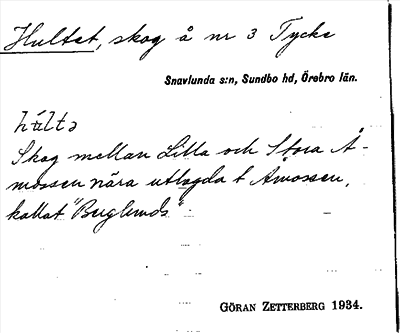 Hultet, skog å nr 3 Tycke
Snavlunda s:n, Sundbo hd, Örebro län.
hu̇ltə
Skog mellan Lilla och Stora Å-
mossen nära utbygda t Åmossen,
kallat "Berglunds".
GÖRAN ZETTERBERG 1934.